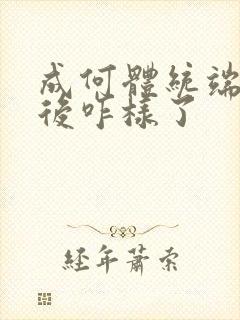 成何體統端
後咋樣了
經年蕭索